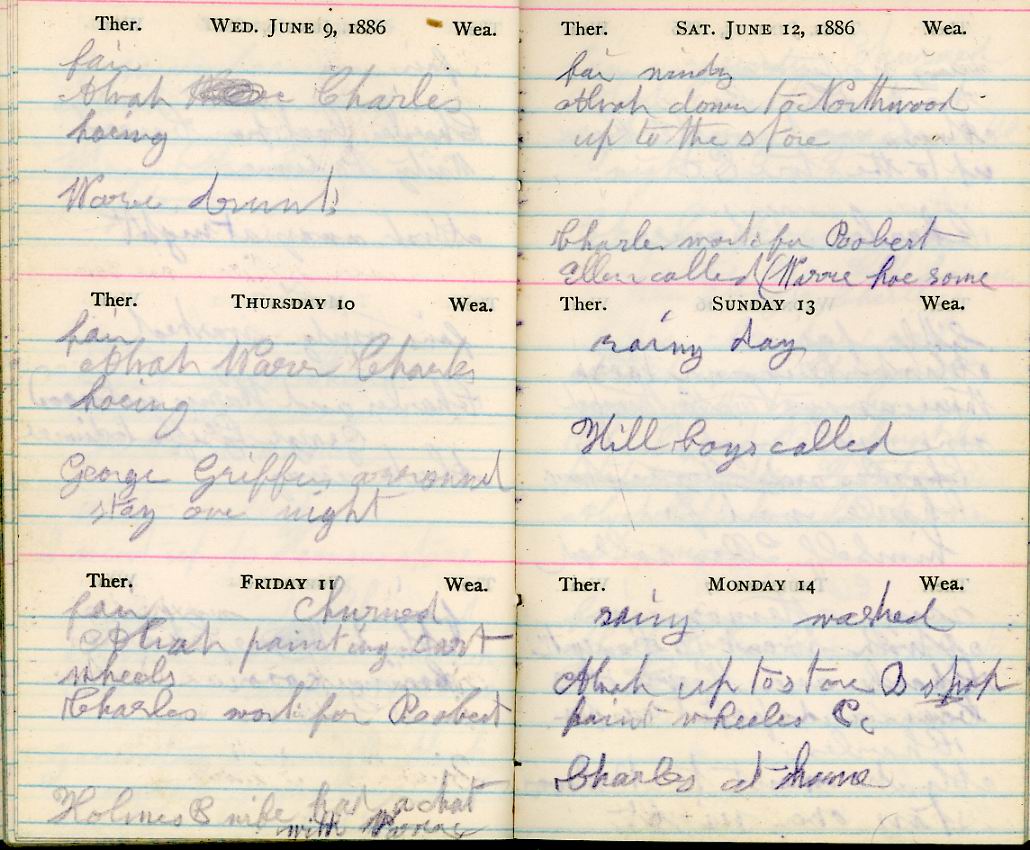 Ther. WED. JUNE 9, 1886 Wea.
fair
Alvah Charles
hoing
Warie drunk
Ther. THURSDAY 10 Wea.
fair
Alvah Charles
hoeing
George Griffin
stay over night
Ther. FRIDAY 11 Wea.
fair churned
Alvah painting cart
wheels
Charles work for Robert
Holmes & wife had a chat
with
Ther. SAT. JUNE 12, 1886 Wea.
fair windy
Alvah down to Northwood
up to the store
Charles work for Robert
Ellen called (Warie hoe some
Ther. SUNDAY 13 Wea.
rainy day
Hill boys called
Ther. MONDAY 14 Wea.
rainy washed
Alvah up to store & shop
paint wheeles &c
Charles at home